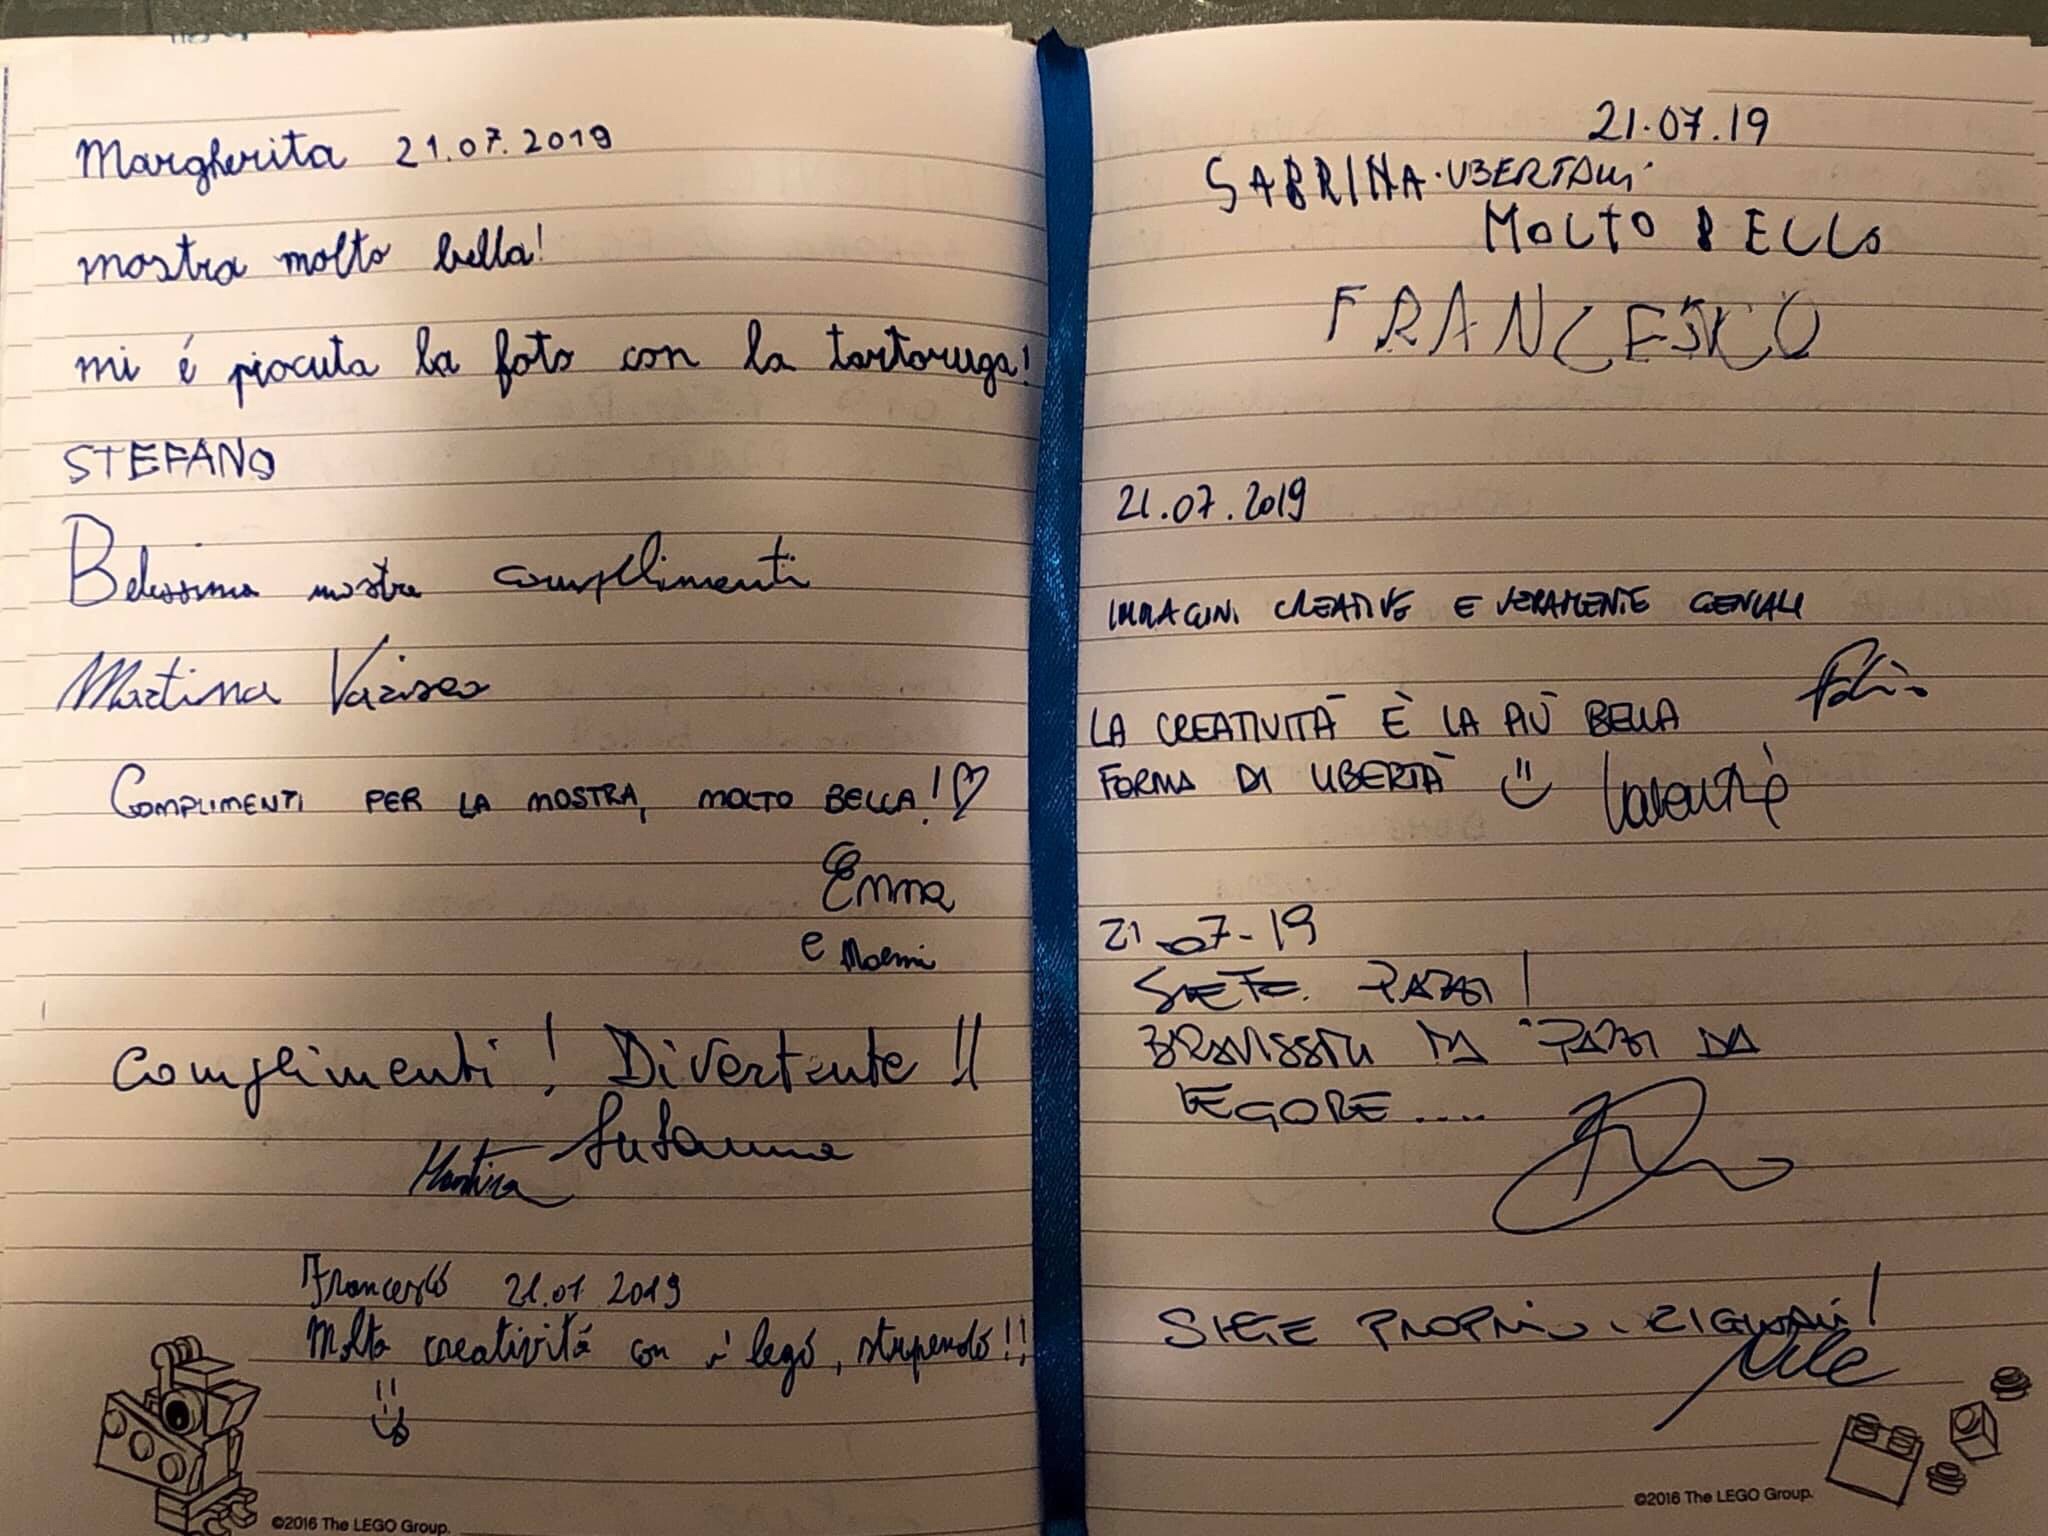 Margherita 21.07.2019
mostra molto bella!
mi é piocuta la foto con la tartoruga!
STEFANO
Belissima mostra complimenti
Martina Varisco
COMPLIMENTI PER LA MOSTRA, MOLTO BELLA! ♡
Emma
e Noemi
Complimenti! Divertente!!
Martina Susanna
Francesco 21.07 2019
Molta creativitá con i lego, stupendo!!
©2016 The LEGO Group.
21.07.19
SABRINA
MOLTO BELLO
FRANCESCO
21.07.2019
IMMAGINI CREATIVE E VERAMENTE GENIALI
LA CREATIVITÀ È LA PIÙ BELLA
FORMA DI LIBERTÀ
21-07-19
SIETE PAZZI!
BRAVISSIMI DA PAZZI DA
LEGORE....
SIETE PROPRIO
©2016 The LEGO Group.